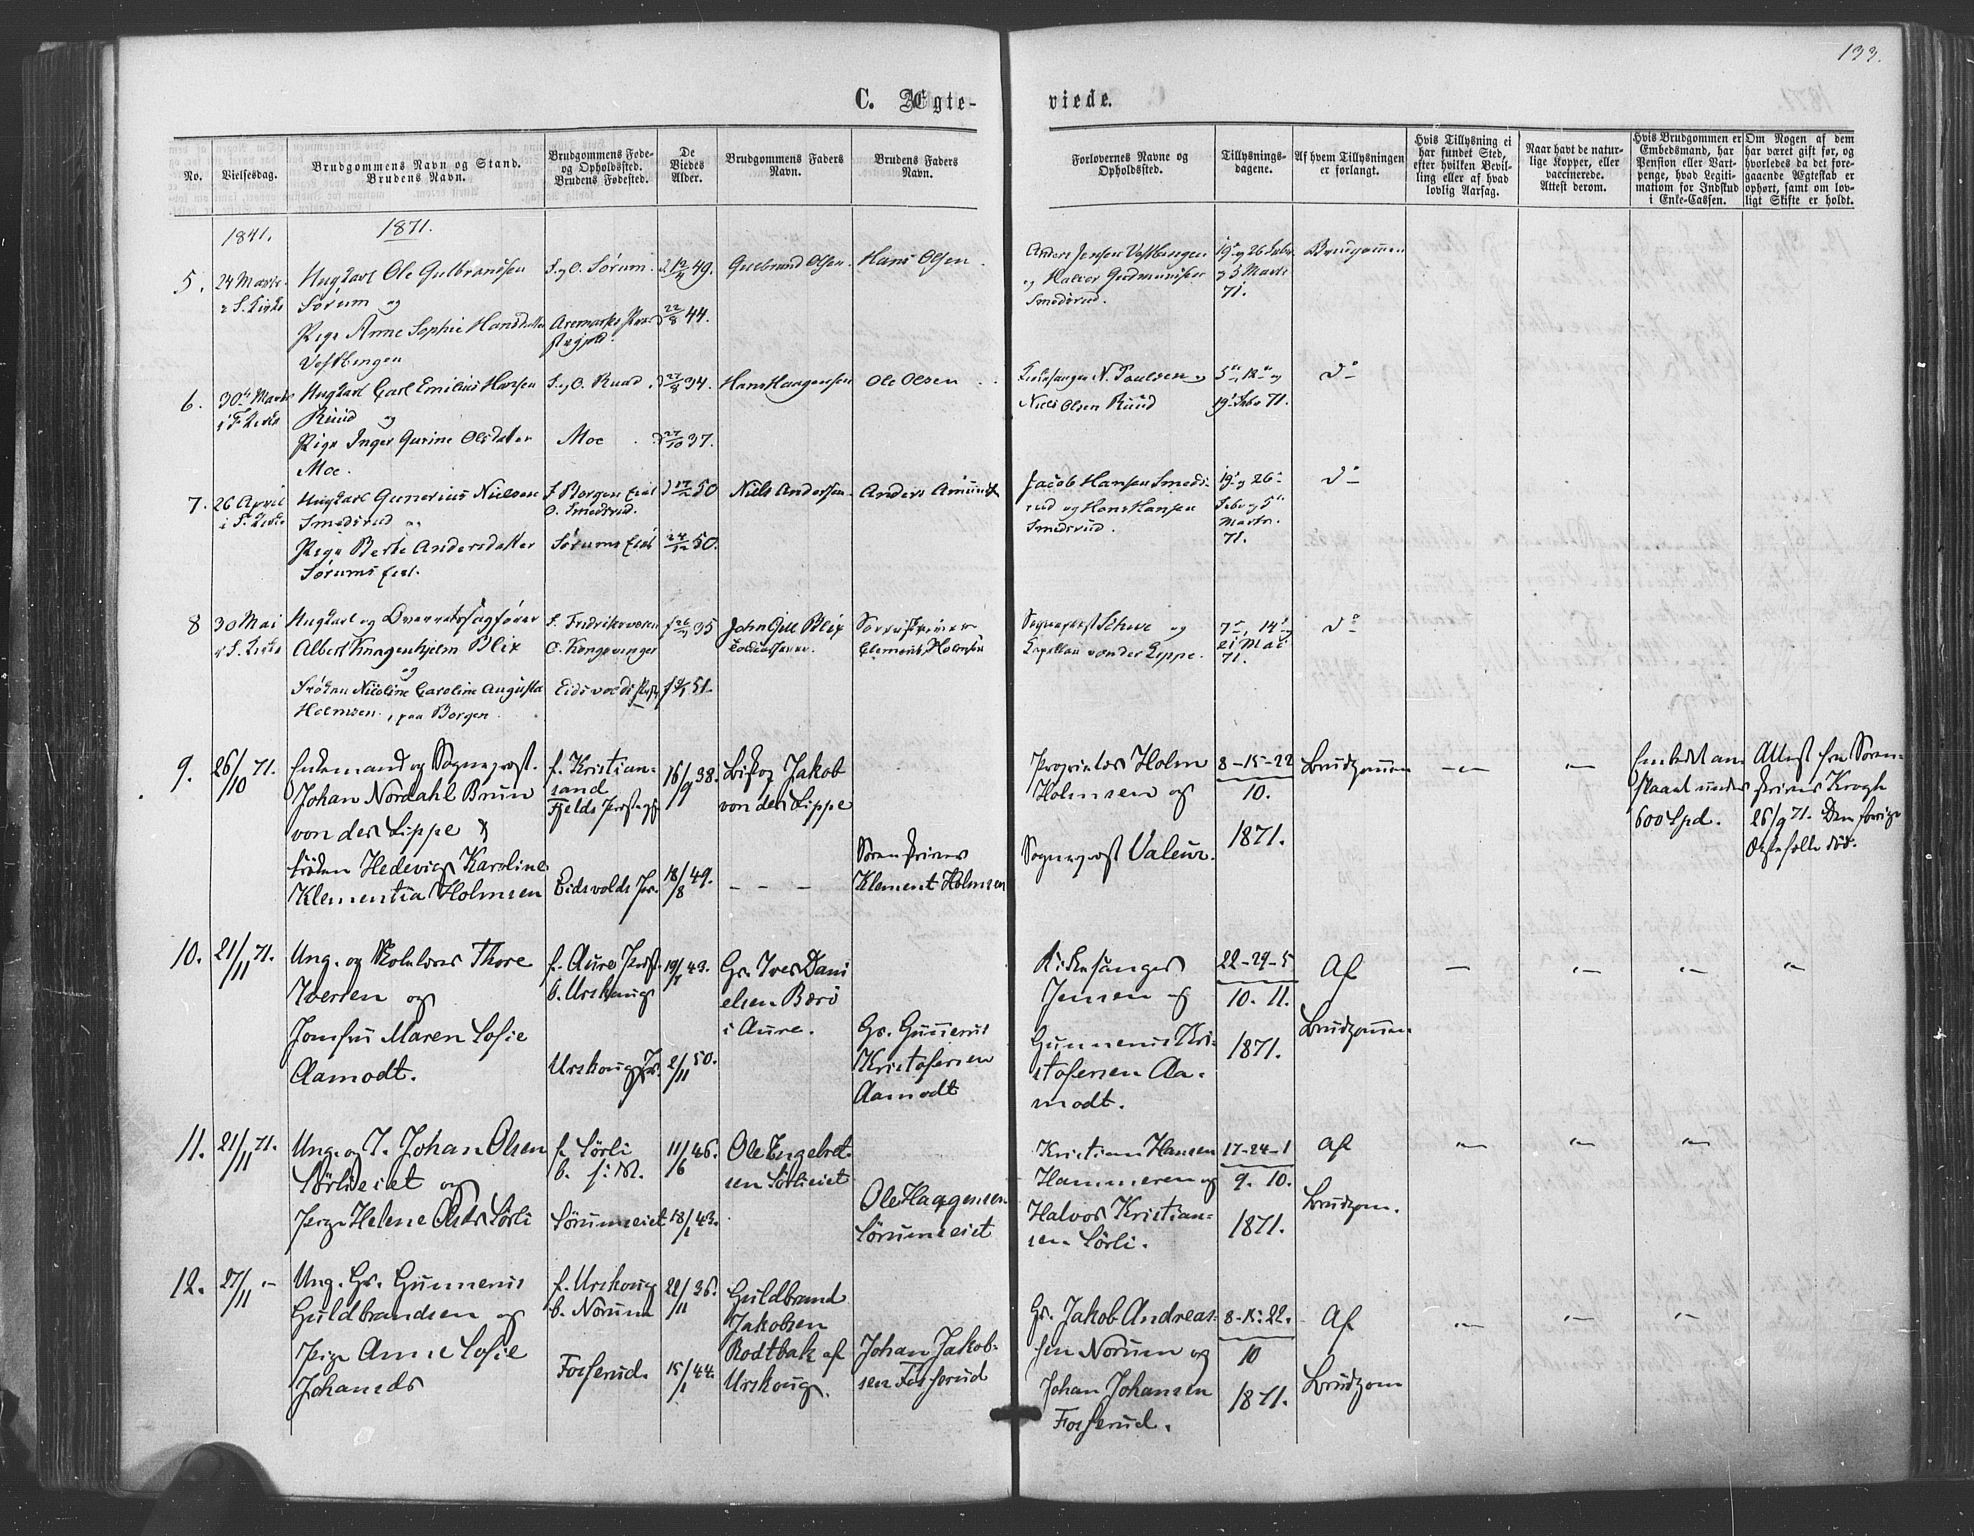 133.
C. Ægte-
viede.
No.
Vielsesdag.
Brudgommens Navn og Stand.
Brudens Navn.
Brudgommens Føde-
og Opholdssted.
Brudens Fødested.
De
Viedes
Alder.
Brudgommens Faders
Navn.
Brudens Faders
Navn.
Forlovernes Navne og
Opholdssted.
Tillysnings-
dagene.
Af hvem Tillysningen
er forlangt.
Hvis Tillysning ei
har fundet Sted,
efter hvilken Bevil-
ling eller af hvad
lovlig Aarsag.
Naar havt de natur-
lige Kopper, eller
vaccinerede.
Attest derom.
Hvis Brudgommen er
Embedsmand, har
Pension eller Vart-
penge, hvad Legiti-
mation for Indskud
i Enke-Cassen.
Om Nogen af dem
har været gift før, og
hvorledes da det fore-
gaaende Ægteskab er
ophørt, samt om lov-
ligt Skifte er holdt.
1871.
5.
24 Marts
i S. Kirke
Ungkarl Ole Gulbrandsen
Sørum og
Pige Anne Sophie Hansdatter
Vestbengen
F. og O. Sørum.
Aremarks Præ-
stegjeld.
49.
22/8 44.
Gulbrand Olsen.
Hans Olsen
Anders Jensen Vestbengen
og Halvor Gudmundsen
Smedsrud.
19de og 26 Febr
og 5 Marts
71.
Brudgommen
6.
30te Marts
i F. Kirke
Ungkarl Carl Emilius Hansen
Ruud og
Pige Inger Gurine Olsdatter
Moe.
F. og O. Ruud
Moe
27/8 34.
27/10 37.
Hans Haagensen
Ole Olsen
Kirkesanger N. Poulsen og
Niels Olsen Ruud
5te, 12te og
19de Febr 71.
do
7.
26 April
i F. Kirke
Ungkarl Gunerius Nielsen
Smedsrud og
Pige Berte Andersdatter
Sørums Eiet.
F. Borgen Eiet
O. Smedsrud.
Sørums Eiet
50
24/12 50.
Niels Andersen
Anders Amunds
Jacob Hansen Smeds-
rud og Hans Hansen
Smedsrud.
19de og 26de
Febr og 5te
Marts
71.
do
8
30 Mai
i S. Kirke
Ungkarl og Overretssagfører
Albert Knagenhjelm Blix
og
Frøken Nicoline Caroline Augusta
Holmsen, paa Borgen.
F. Fredriksværn
O. Kongsvinger
Eidsvolds Præst.
35
51.
John Gill Blix
Sorenskriver
Clement Holmsen
Sogneprest Schive og
Capellan vonder Lippe.
7de, 14de og
21 Mai
71.
do
9.
26/10 71.
Enkemand og Sogneprest.
Johan Nordahl Brun
von der Lippe &
Frøken Hedevig Karoline
Klementia Holmsen
f. Kristian-
sand
Fjelds Prstegj.
Eidsvolds Pr.
16/9 38.
18/8 49.
Biskop Jakob
von der Lippe
– – –
Soren skriver
Klement Holmsen
Proprietær Holm
Holmsen og
Sogneprest Valeur.
8-15-22
10.
1871.
Brudgommen
Embedet an-
slaaet under
600 Spd.
Attest fra Soren-
skriver Krogh
26/9 71. Den forrige
Ægtefælle død.
10.
21/11 71.
Ung. og Skolelærer Thore
Iversen og
Jomfru Maren Sofie
Aamodt.
f. Aure Prst.
b. Urskoug
Urskoug Pr.
43.
2/11 50.
Gr. Iver Dani
elsen Bærø
i Aure.
Gr. Gunnerus
Kristofersen
Aamodt
Kirkesanger
Jensen og
Gunnerus Kri-
stofersen Aa-
modt.
22-29-5
10. 11.
1871.
Af
Brudgommen
11.
21/11 71.
Ung. og I. Johan Olsen
Sørlieiet og
Pige Helene Olsds Sørli
f. Sørli
Sørumseiet
11/6 46.
18/1 43.
Ole Engebret-
sen Sørlieiet
Ole Haagensen
Sørumseiet
Kristian Hansen
Hammeren og
Halvor Kristian-
sen Sørli.
17-24-1
9. 10.
1871.
Af
Brudgom.
12.
27/11
Ung. Gr. Gunnerus
Guldbrandsen og
Pige Anne Sofie
Johansds
f. Urskoug
b. Norum
Fosserud.
22/11 36.
15/1 44.
Guldbrand
Jakobsen
Rodtbak af
Urskoug.
Johan Jakob-
sen Fosserud
Gr. Jakob Andreas-
sen Norum og
Johan Johansen
Fosserud.
8-15-22.
10
1871.
Af
Brudgom